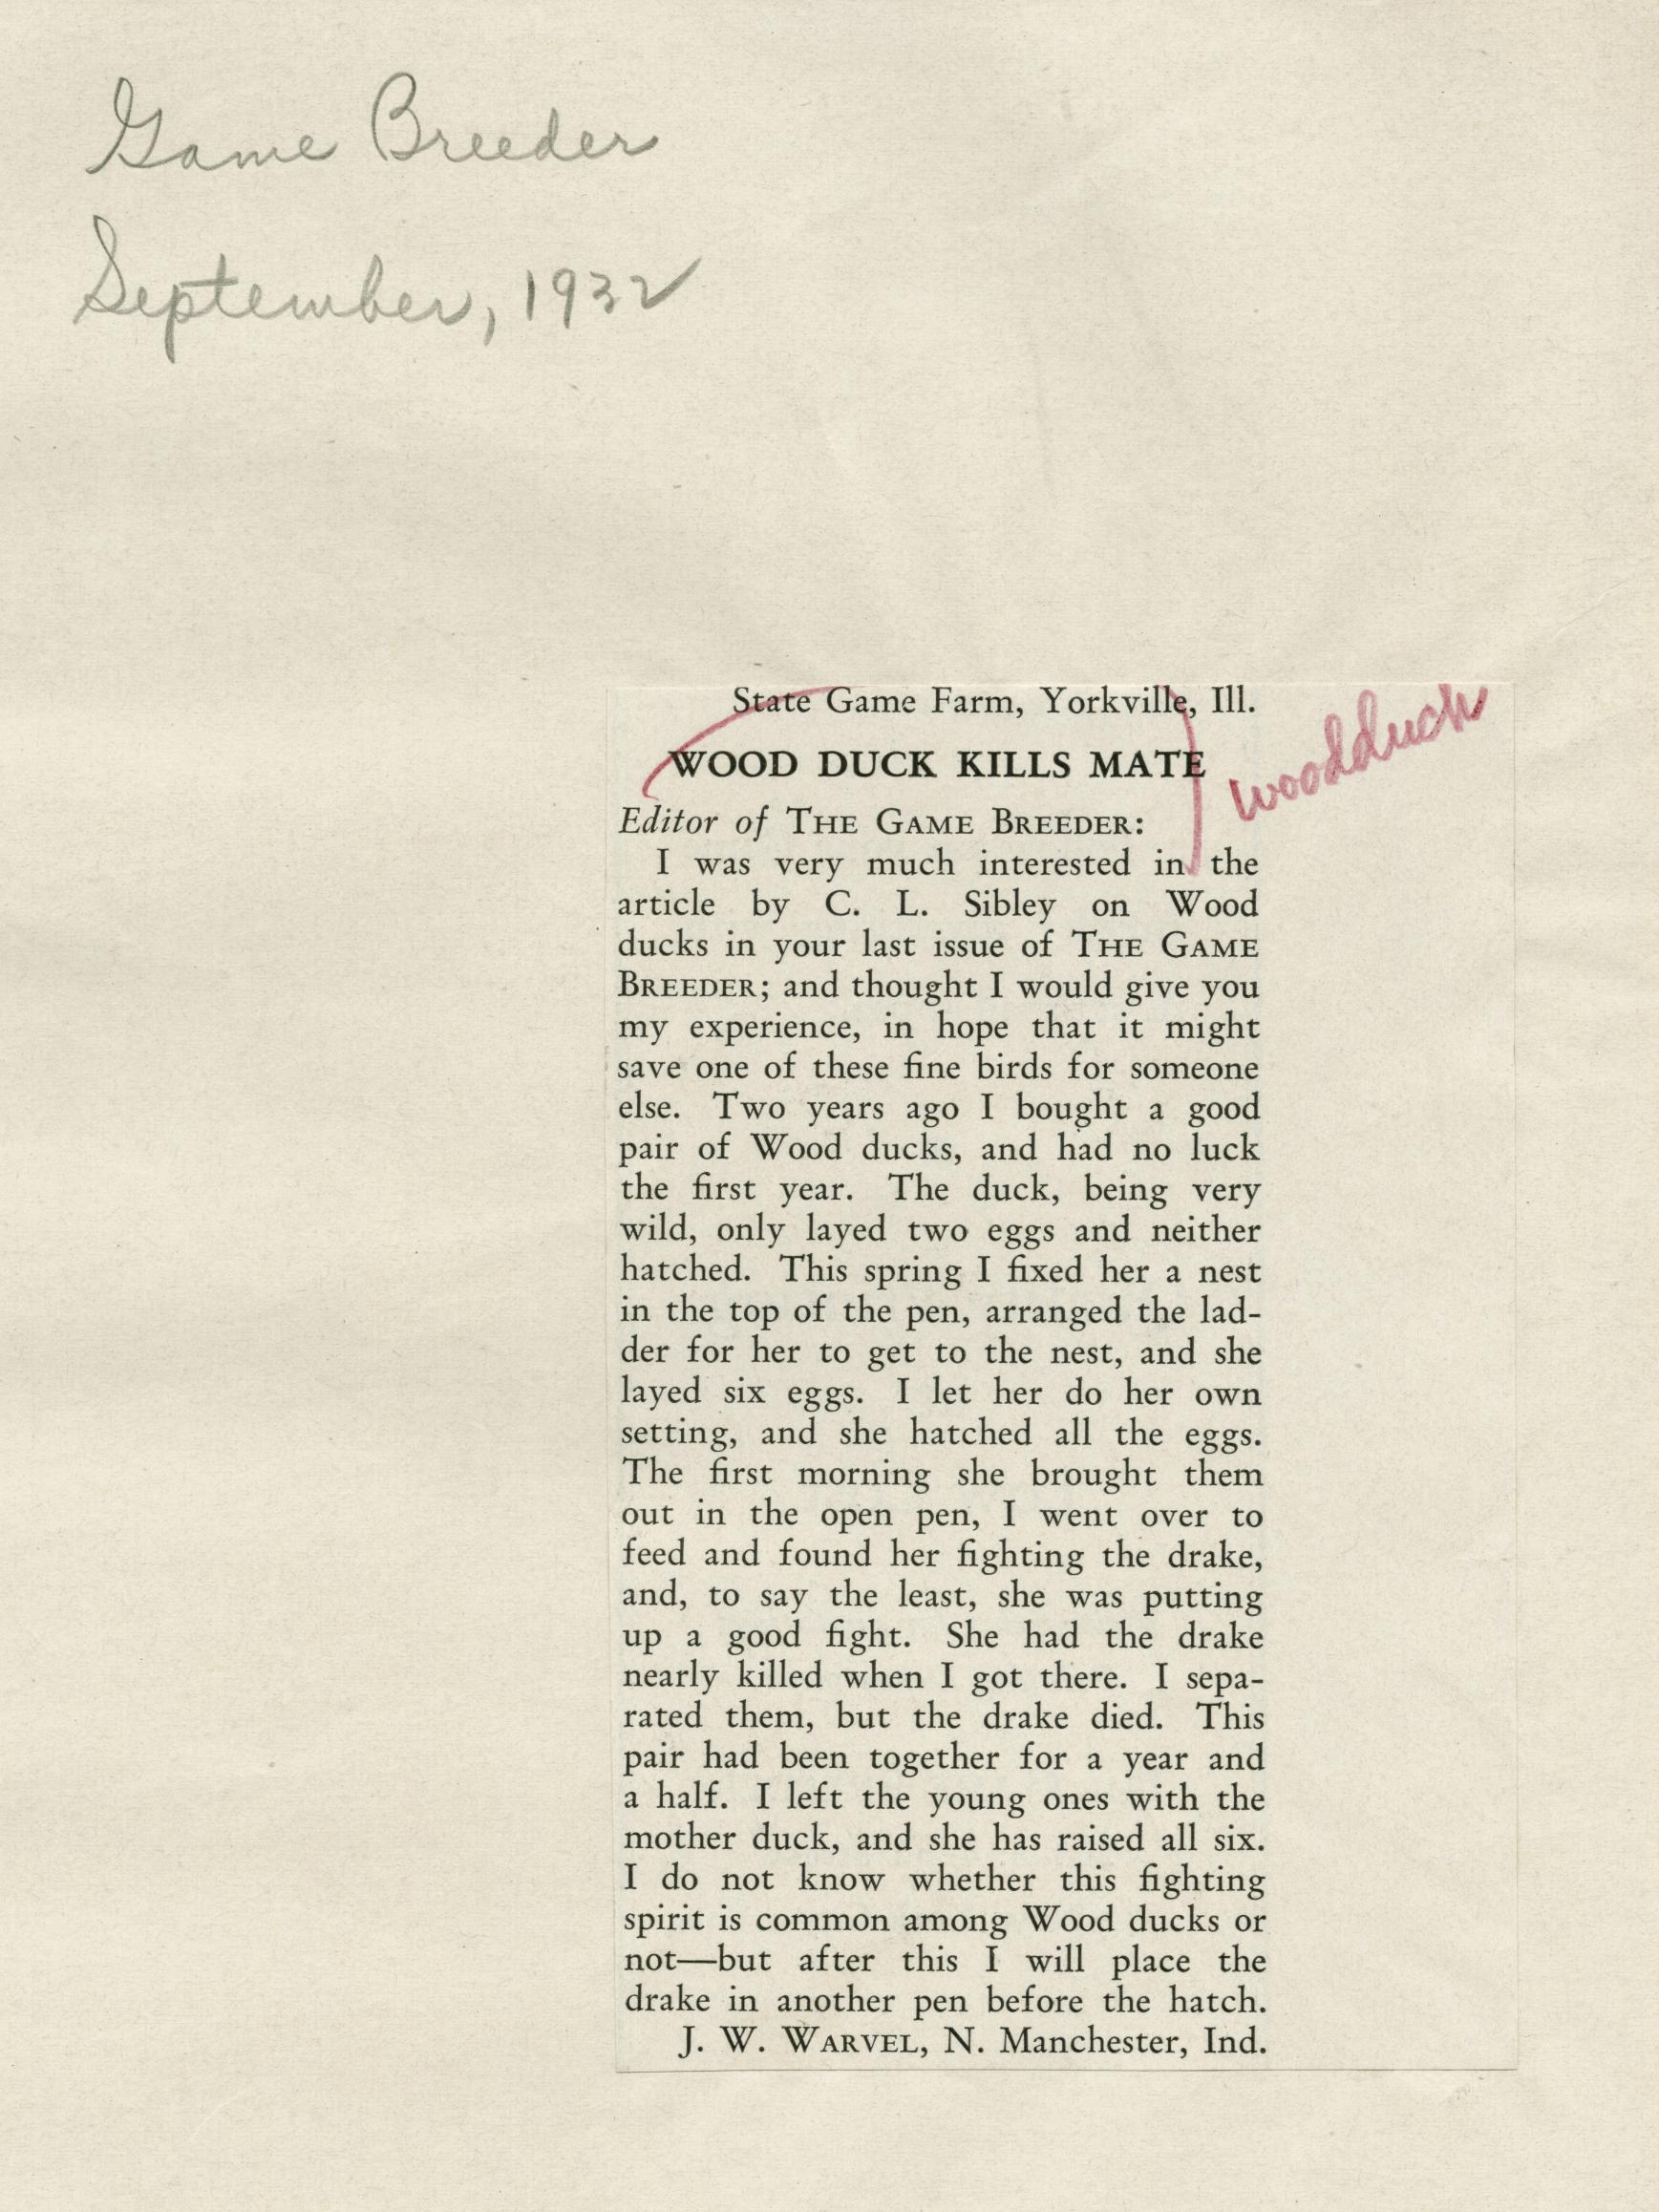 Game Breeder
September, 1932
State Game Farm, Yorkville, Ill.
WOOD DUCK KILLS MATE
woodduck
Editor of THE GAME BREEDER:
I was very much interested in the
article by C. L. Sibley on Wood
ducks in your last issue of THE GAME
BREEDER; and thought I would give you
my experience, in hope that it might
save one of these fine birds for someone
else. Two years ago I bought a good
pair of Wood ducks, and had no luck
the first year. The duck, being very
wild, only layed two eggs and neither
hatched. This spring I fixed her a nest
in the top of the pen, arranged the lad-
der for her to get to the nest, and she
layed six eggs. I let her do her own
setting, and she hatched all the eggs.
The first morning she brought them
out in the open pen, I went over to
feed and found her fighting the drake,
and, to say the least, she was putting
up a good fight. She had the drake
nearly killed when I got there. I sepa-
rated them, but the drake died. This
pair had been together for a year and
a half. I left the young ones with the
mother duck, and she has raised all six.
I do not know whether this fighting
spirit is common among Wood ducks or
not—but after this I will place the
drake in another pen before the hatch.
J. W. WARVEL, N. Manchester, Ind.